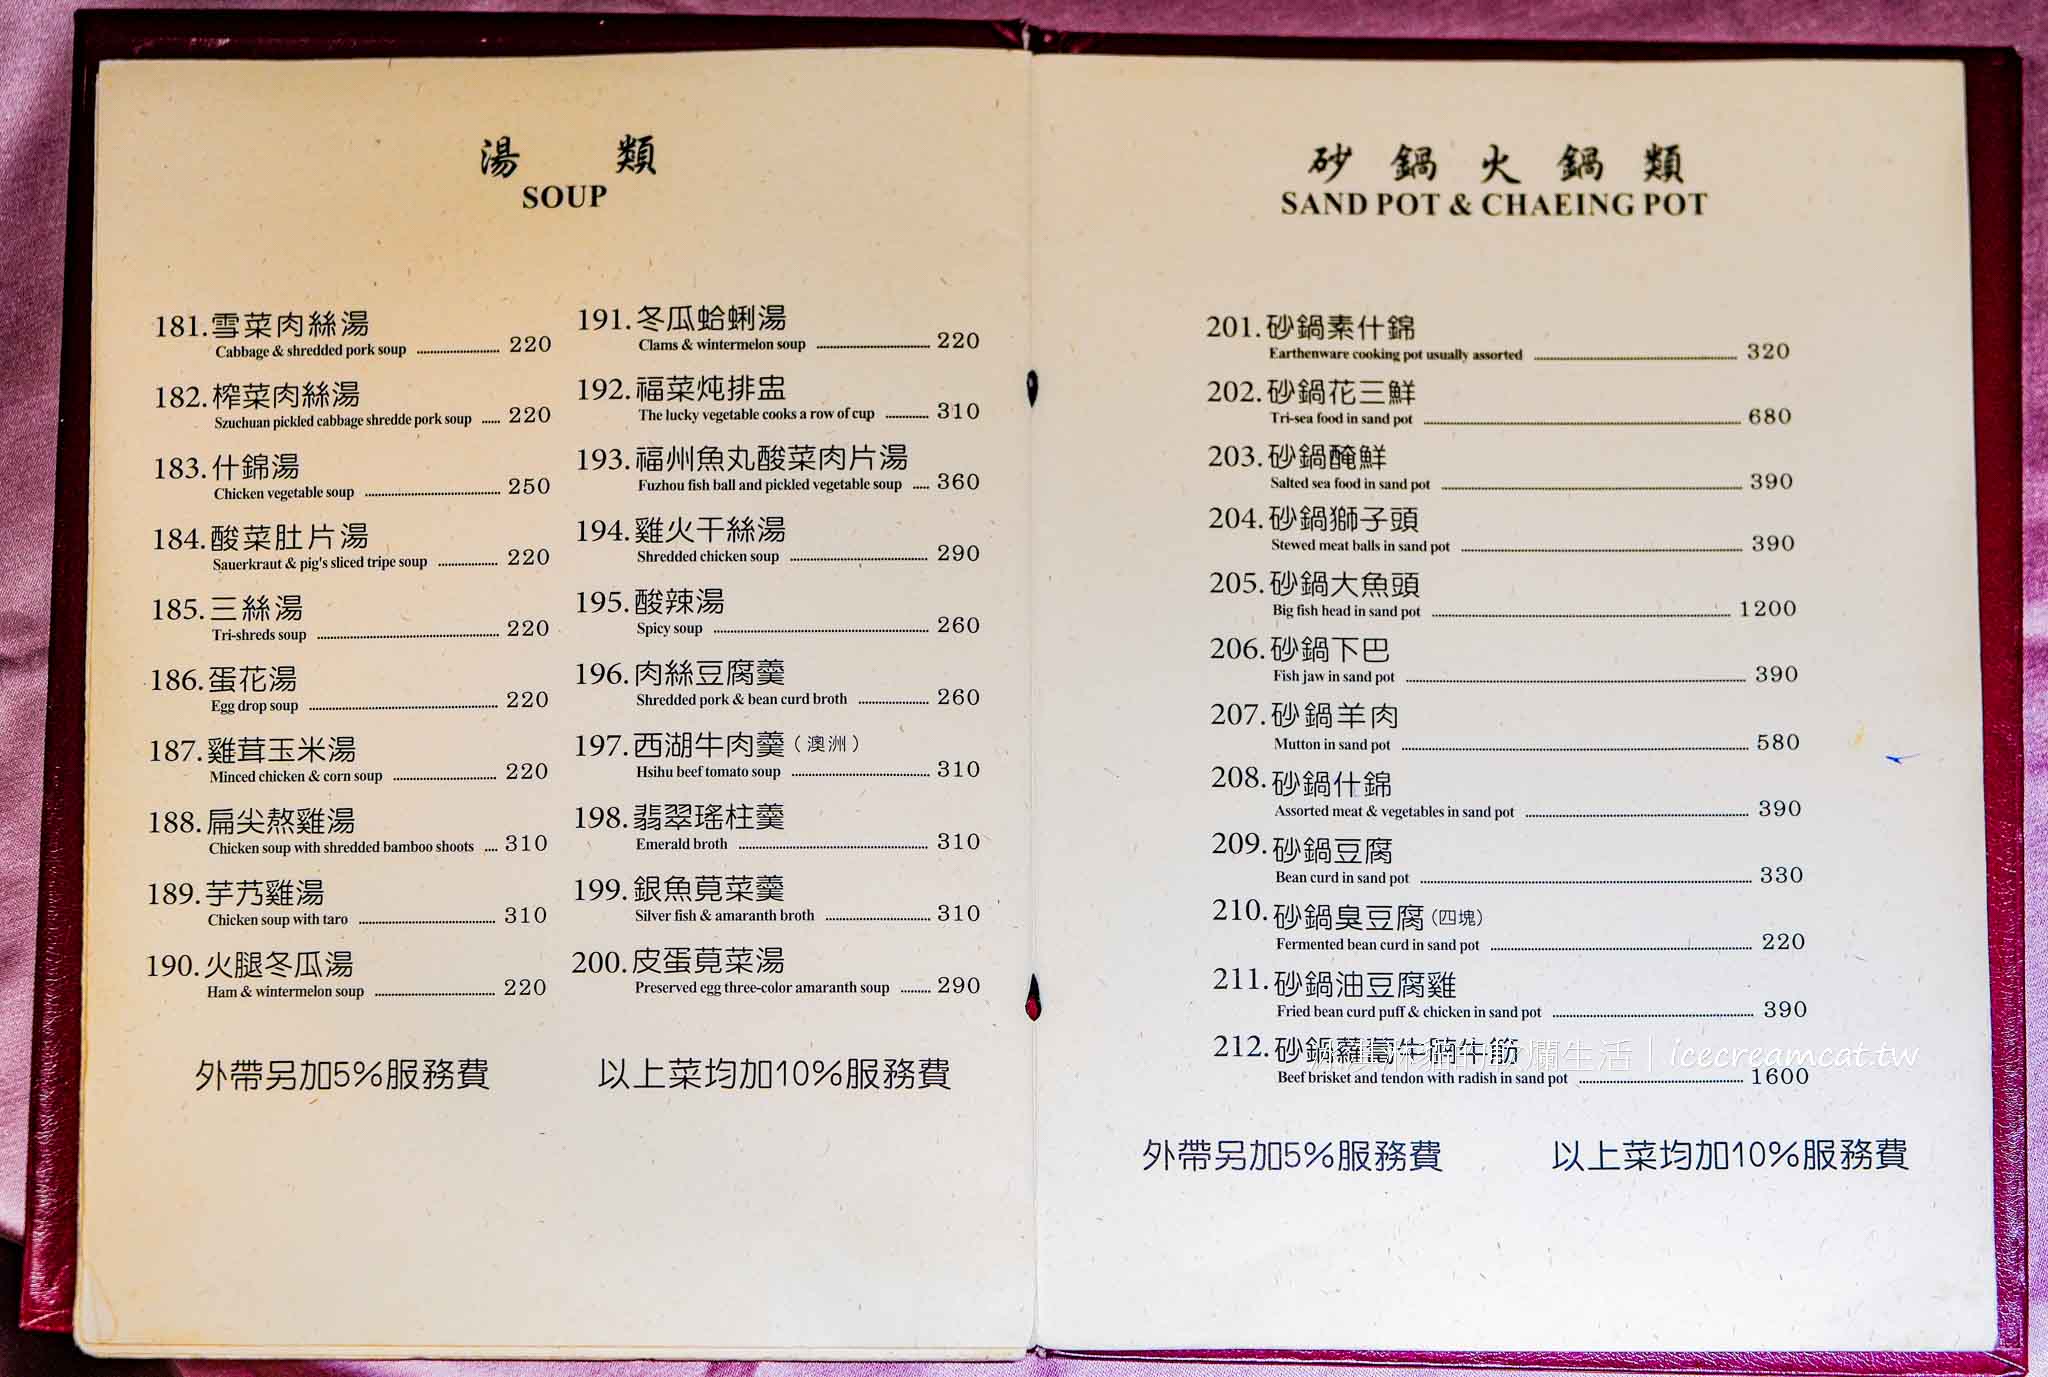 湯類
SOUP
181.雪菜肉絲湯
Cabbage & shredded pork soup 220
182.榨菜肉絲湯
Szuchuan pickled cabbage shredde pork soup 220
183.什錦湯
Chicken vegetable soup 250
184.酸菜肚片湯
Sauerkraut & pig's sliced tripe soup 220
185.三絲湯
Tri-shreds soup 220
186.蛋花湯
Egg drop soup 220
187.雞茸玉米湯
Minced chicken & corn soup 220
188.扁尖熬雞湯
Chicken soup with shredded bamboo shoots 310
189.芋艿雞湯
Chicken soup with taro 310
190.火腿冬瓜湯
Ham & wintermelon soup 220
191.冬瓜蛤蜊湯
Clams & wintermelon soup 220
192.福菜炖排盅
The lucky vegetable cooks a row of cup 310
193.福州魚丸酸菜肉片湯
Fuzhou fish ball and pickled vegetable soup 360
194.雞火干絲湯
Shredded chicken soup 290
195.酸辣湯
Spicy soup 260
196.肉絲豆腐羹
Shredded pork & bean curd broth 260
197.西湖牛肉羹（澳洲）
Hsihu beef tomato soup 310
198.翡翠瑤柱羹
Emerald broth 310
199.銀魚莧菜羹
Silver fish & amaranth broth 310
200.皮蛋莧菜湯
Preserved egg three-color amaranth soup 290
外帶另加5%服務費 以上菜均加10%服務費
砂鍋火鍋類
SAND POT & CHAEING POT
201.砂鍋素什錦
Earthenware cooking pot usually assorted 320
202.砂鍋花三鮮
Tri-sea food in sand pot 680
203.砂鍋醃鮮
Salted sea food in sand pot 390
204.砂鍋獅子頭
Stewed meat balls in sand pot 390
205.砂鍋大魚頭
Big fish head in sand pot 1200
206.砂鍋下巴
Fish jaw in sand pot 390
207.砂鍋羊肉
Mutton in sand pot 580
208.砂鍋什錦
Assorted meat & vegetables in sand pot 390
209.砂鍋豆腐
Bean curd in sand pot 330
210.砂鍋臭豆腐(四塊)
Fermented bean curd in sand pot 220
211.砂鍋油豆腐雞
Fried bean curd puff & chicken in sand pot 390
212.砂鍋蘿蔔牛腩牛筋
Beef brisket and tendon with radish in sand pot 1600
爛生活 | icecreamcat.tw
外帶另加5%服務費 以上菜均加10%服務費